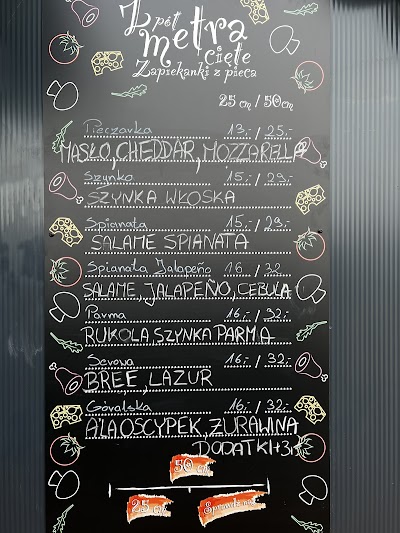 Z pół
metra
cięte
Zapiekanki z pieca
25 cm / 50 cm
Pieczarka 13,- / 25,-
MASŁO, CHEDDAR, MOZZARELLA
Szynka 15,- / 29,-
SZYNKA WŁOSKA
Spianata 15,- / 29,-
SALAME SPIANATA
Spianata Jalapeño 16 / 32
SALAME, JALAPEÑO, CEBULA
Parma 16,- / 32,-
RUKOLA, SZYNKA PARMA
Serowa 16,- / 32,-
BREE, LAZUR
Góralska 16,- / 32,-
A'LAOSCYPEK, ŻURAWINA
DODATKI +3
50 cm
25 cm